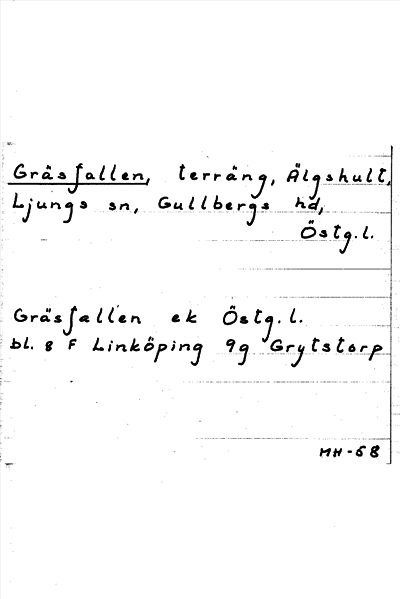 Gräsfallen, terräng, Älgshult,
Ljungs sn, Gullbergs hd,
Östg.l.
Gräsfallen ek Östg.l.
bl. 8 F Linköping 9g Grytstorp
MH-68